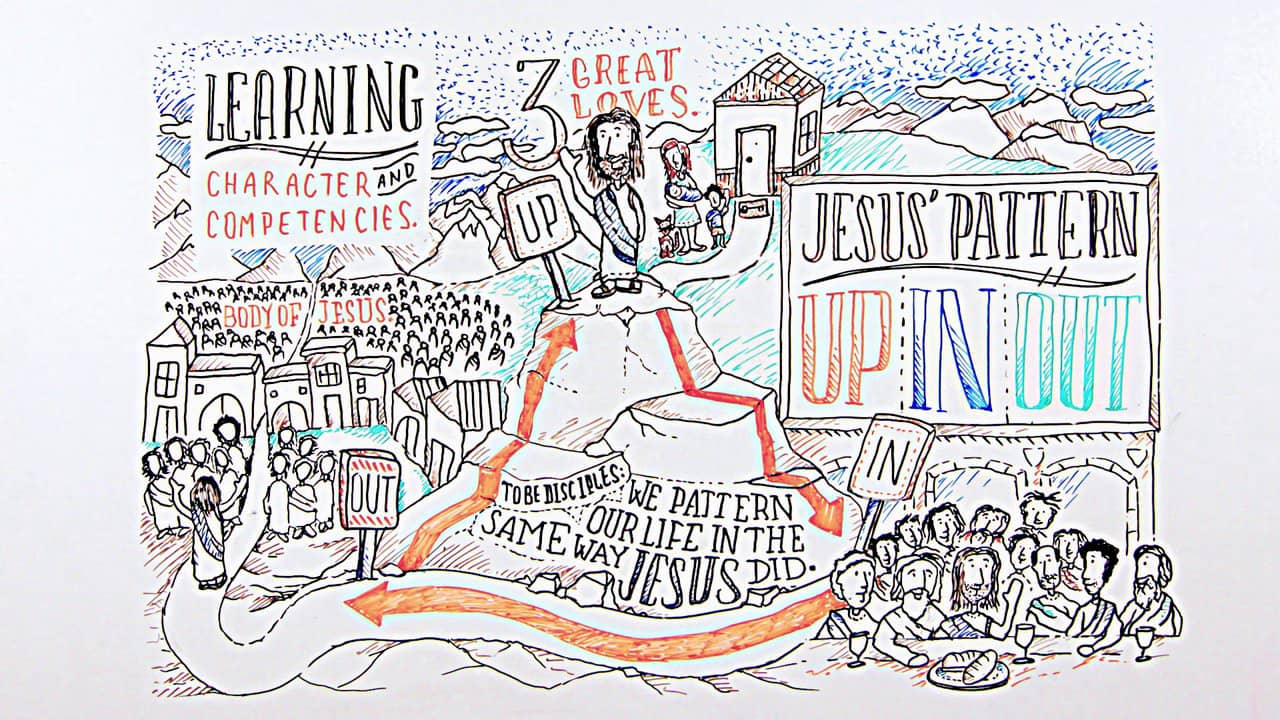 LEARNING
AND
CHARACTER
COMPETENCIES.
3 GREAT
LOVES.
UP
JESUS' PATTERN
UP IN OUT
BODY OF JESUS.
OUT
IN
TO BE DISCIPLES:
WE PATTERN
OUR LIFE IN THE
SAME WAY
JESUS DID.